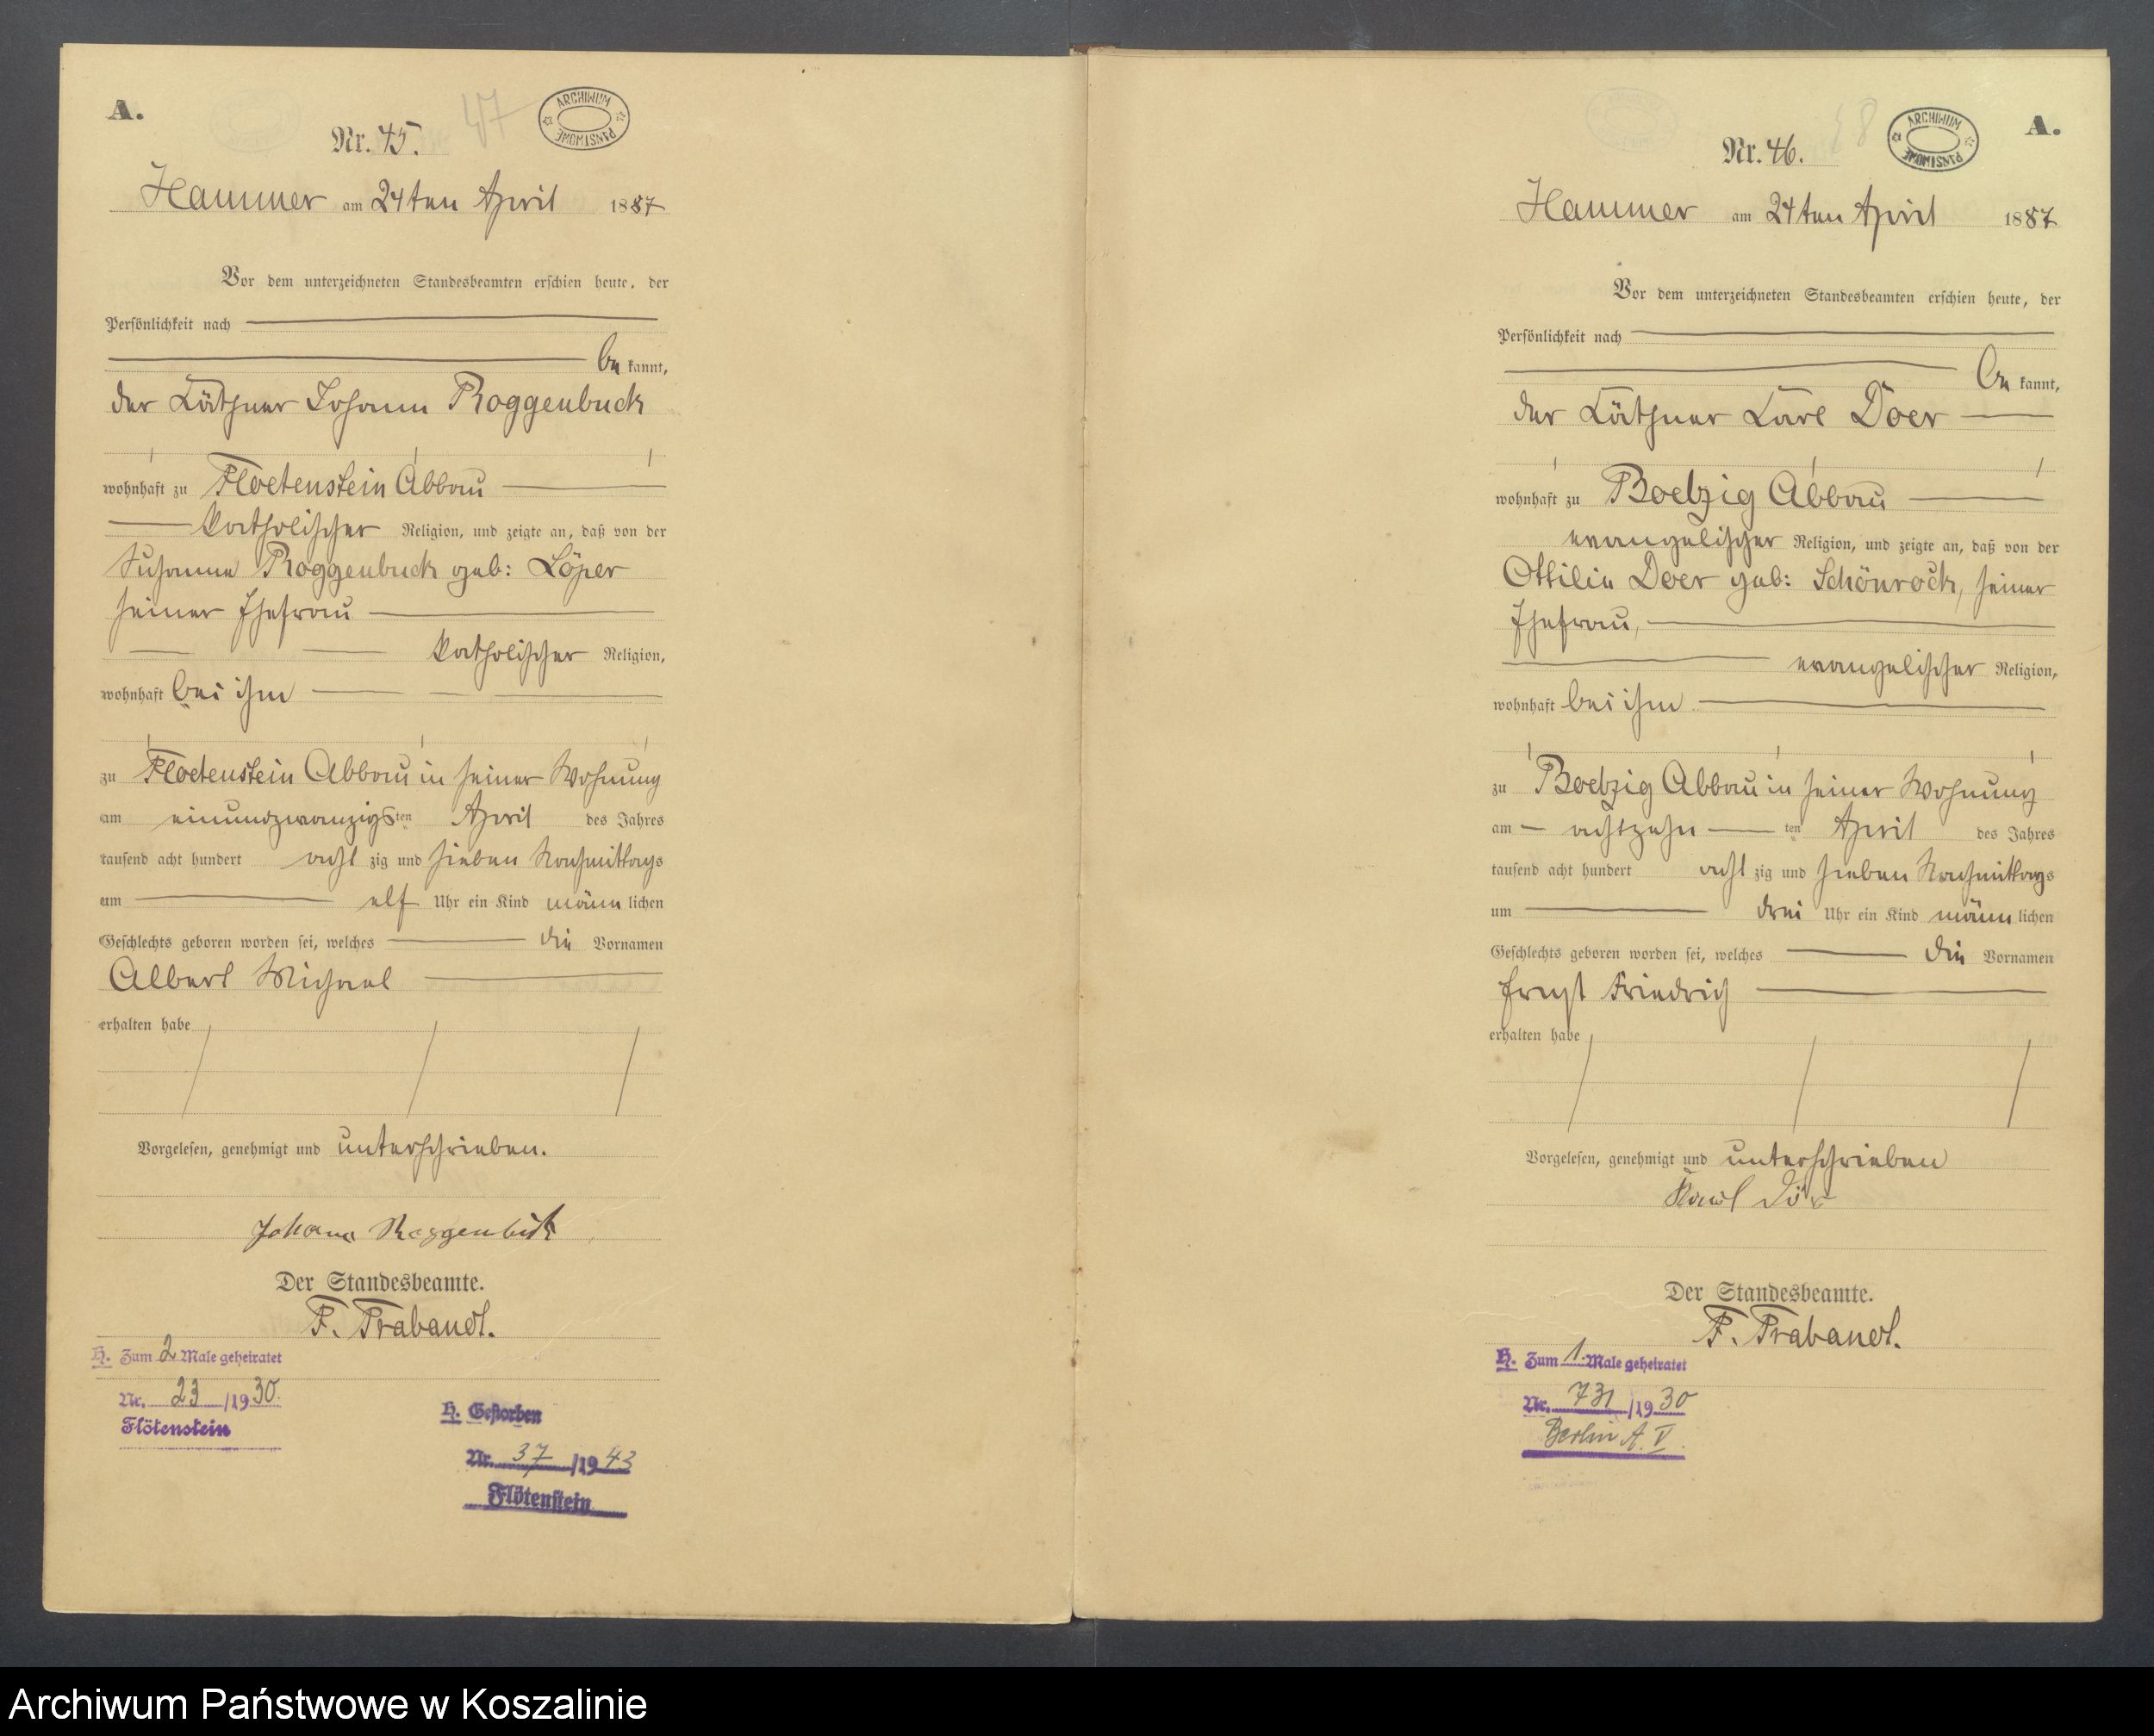 A.
Nr. 45.
47
ARCHIWUM PAŃSTWOWE
Hammer am 24ten April 1887
Vor dem unterzeichneten Standesbeamten erschien heute, der
Persönlichkeit nach
be kannt,
der Käthner Johann Roggenbuck
wohnhaft zu Floetenstein Abbau
katholischer Religion, und zeigte an, daß von der
Susanna Roggenbuck geb: Löper
seiner Ehefrau
katholischer Religion,
wohnhaft bei ihm
zu Floetenstein Abbau in seiner Wohnung
am einundzwanzigsten April des Jahres
tausend acht hundert acht zig und sieben Nachmittags
um elf Uhr ein Kind männ lichen
Geschlechts geboren worden sei, welches die Vornamen
Albert Michael
erhalten habe
Vorgelesen, genehmigt und unterschrieben.
Johann Roggenbuck
Der Standesbeamte.
F. Trabandt.
H. Zum 2 Male geheiratet
Nr. 23 /1930.
Flötenstein
H. Gestorben
Nr. 37 /1943
Flötenstein
A.
Nr. 46.
48
ARCHIWUM PAŃSTWOWE
Hammer am 24ten April 1887
Vor dem unterzeichneten Standesbeamten erschien heute, der
Persönlichkeit nach
be kannt,
der Käthner Carl Doer
wohnhaft zu Boelzig Abbau
evangelischer Religion, und zeigte an, daß von der
Ottilie Doer geb: Schönrock, seiner
Ehefrau,
evangelischer Religion,
wohnhaft bei ihm
zu Boelzig Abbau in seiner Wohnung
am achtzehn ten April des Jahres
tausend acht hundert acht zig und sieben Nachmittags
um drei Uhr ein Kind männ lichen
Geschlechts geboren worden sei, welches die Vornamen
Ernst Friedrich
erhalten habe
Vorgelesen, genehmigt und unterschrieben
Karl Dör
Der Standesbeamte.
F. Trabandt.
H. Zum 1. Male geheiratet
Nr. 731 /1930
Berlin A. V.
Archiwum Państwowe w Koszalinie